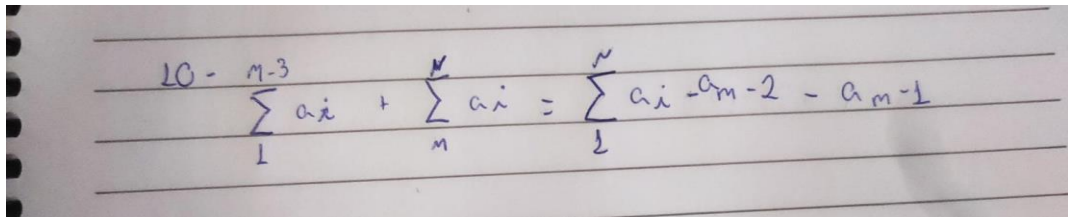 10 - \sum_{1}^{n-3} a_i + \sum_{n}^{N} a_i = \sum_{1}^{N} a_i - a_{n-2} - a_{n-1}